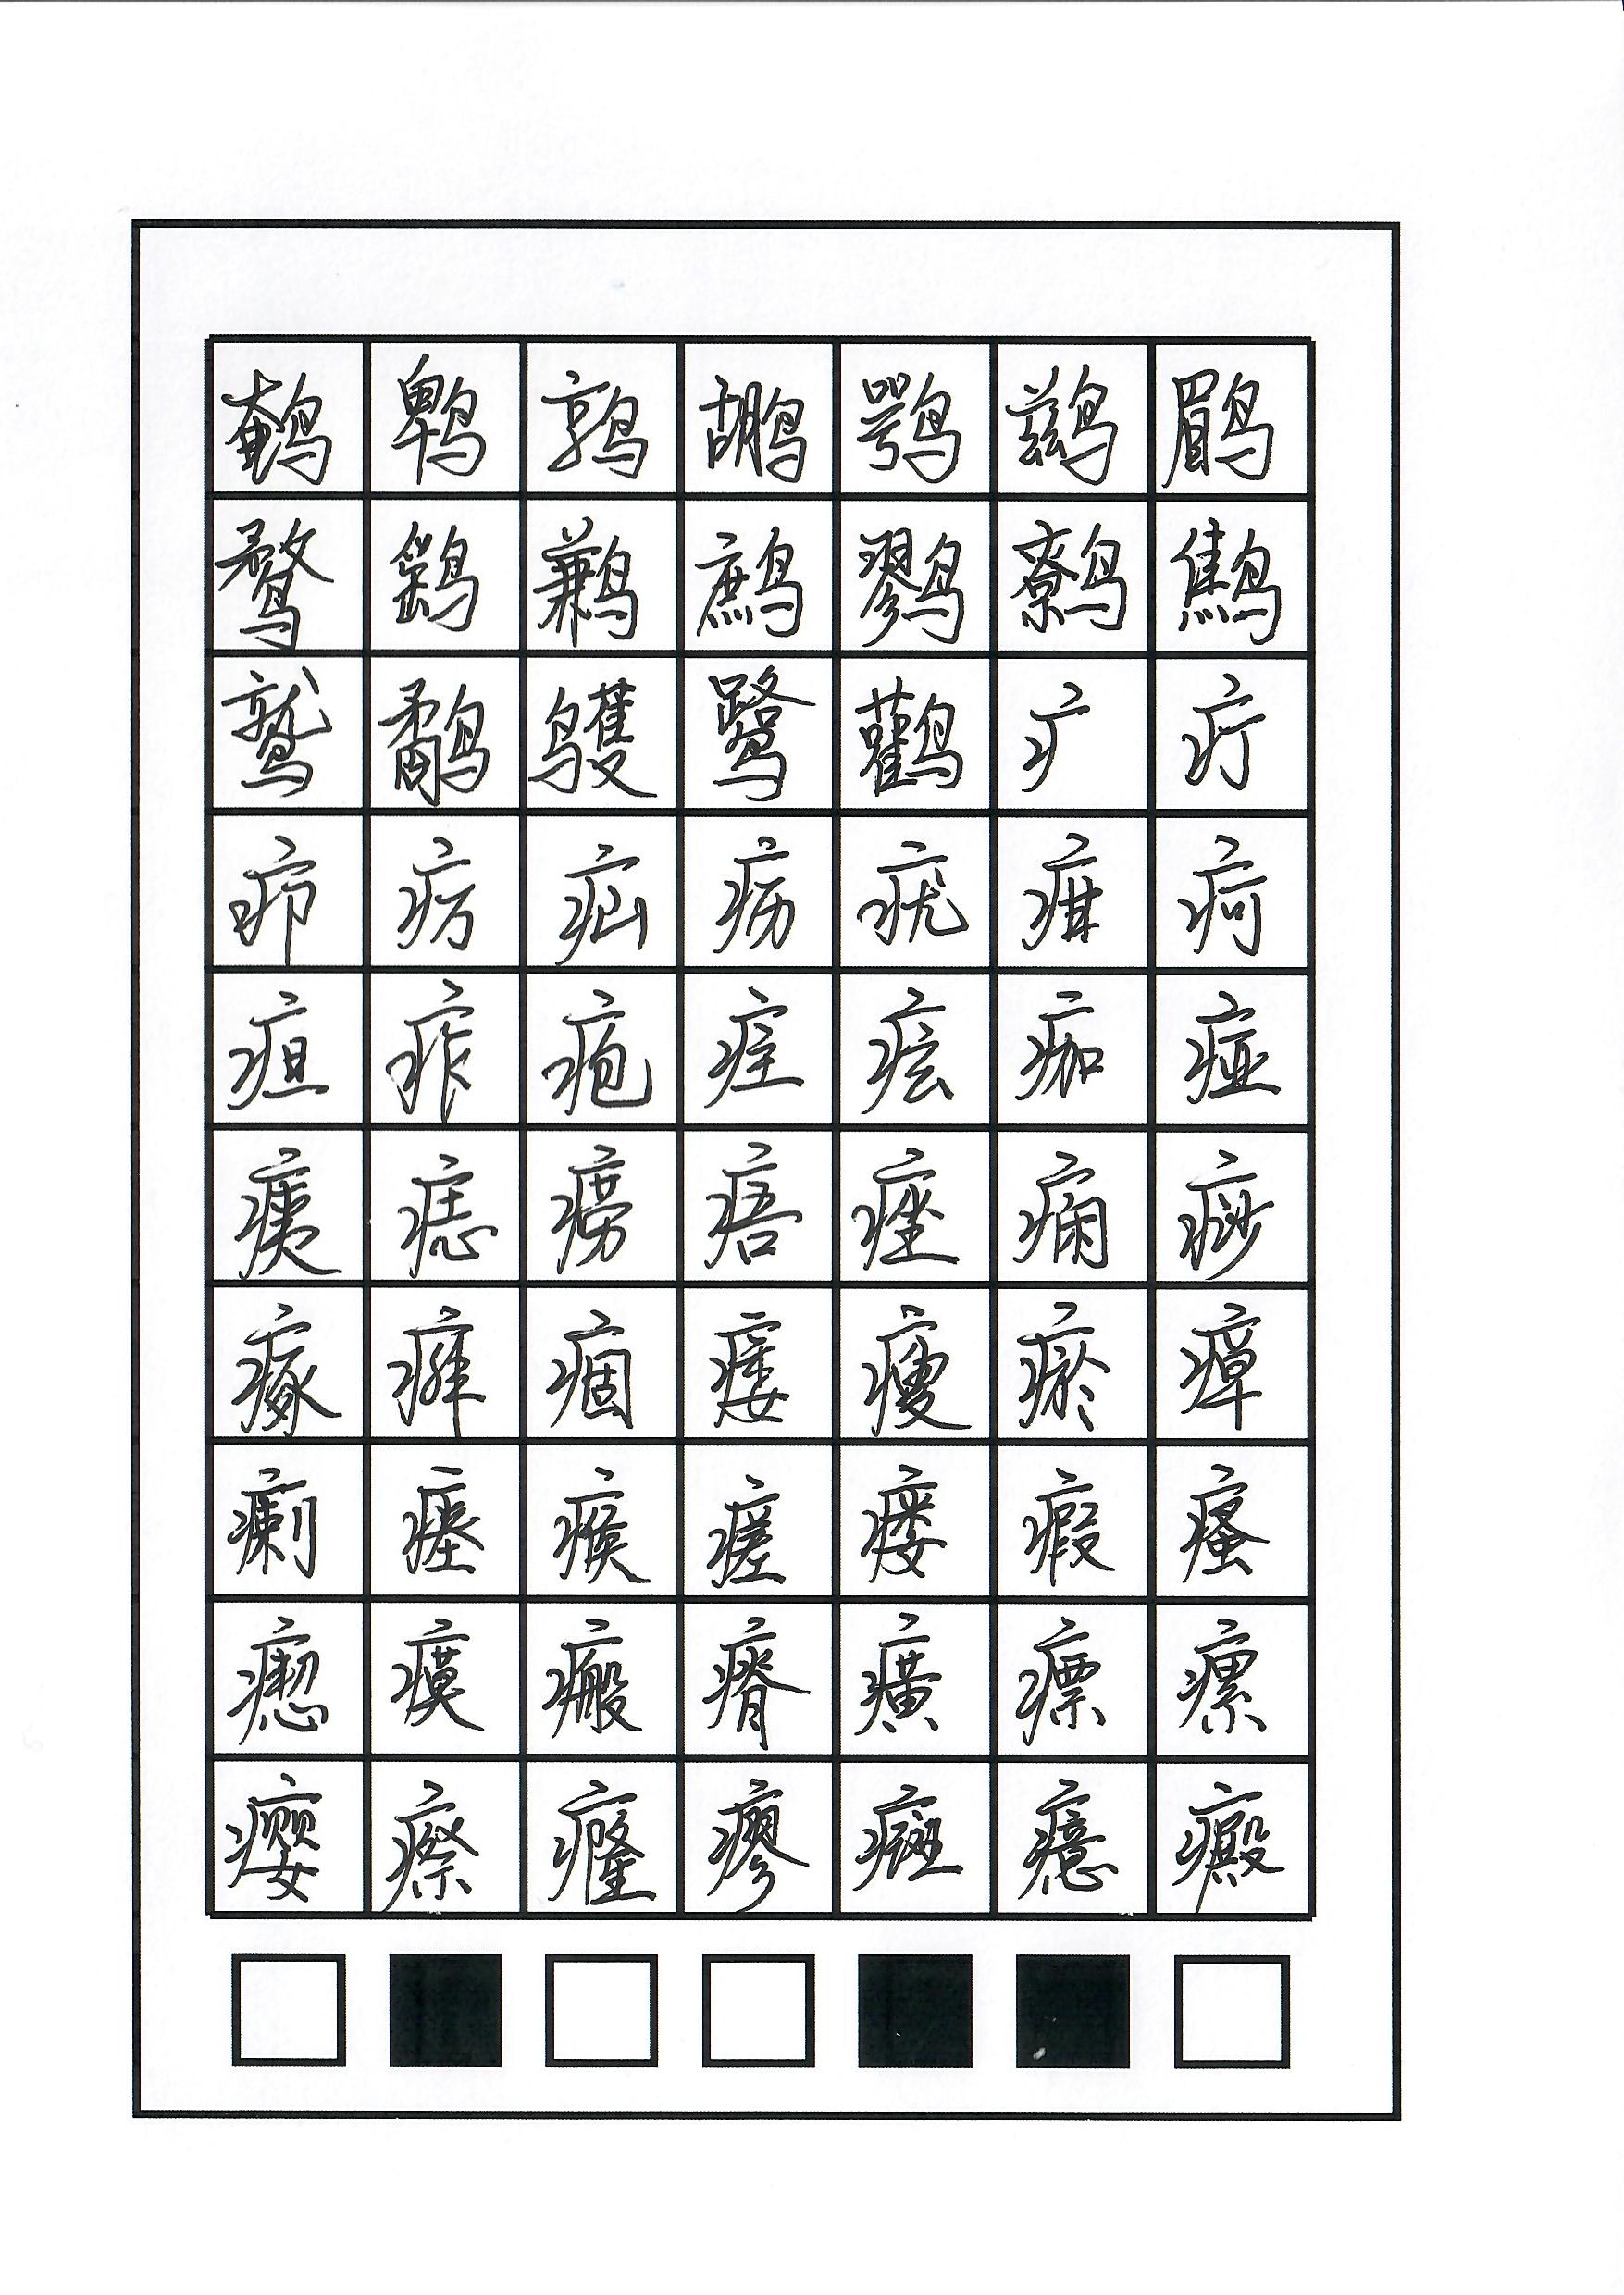 鹌鹎鹑鹕鹗鹚鹛
鹜鹞鹣鹧鹨鹩鹪
鹫鹬鹱鹭鹳疒疔
疖疠疝疬疣疳疴
疸痄疱疰痃痂痖
痍痣痨痦痤痫痧
瘃痱痼痿瘐瘀瘅
瘌瘗瘊瘥瘘瘕瘙
瘛瘼瘢瘠癀瘭瘰
瘿瘵癃瘳癍癔癜